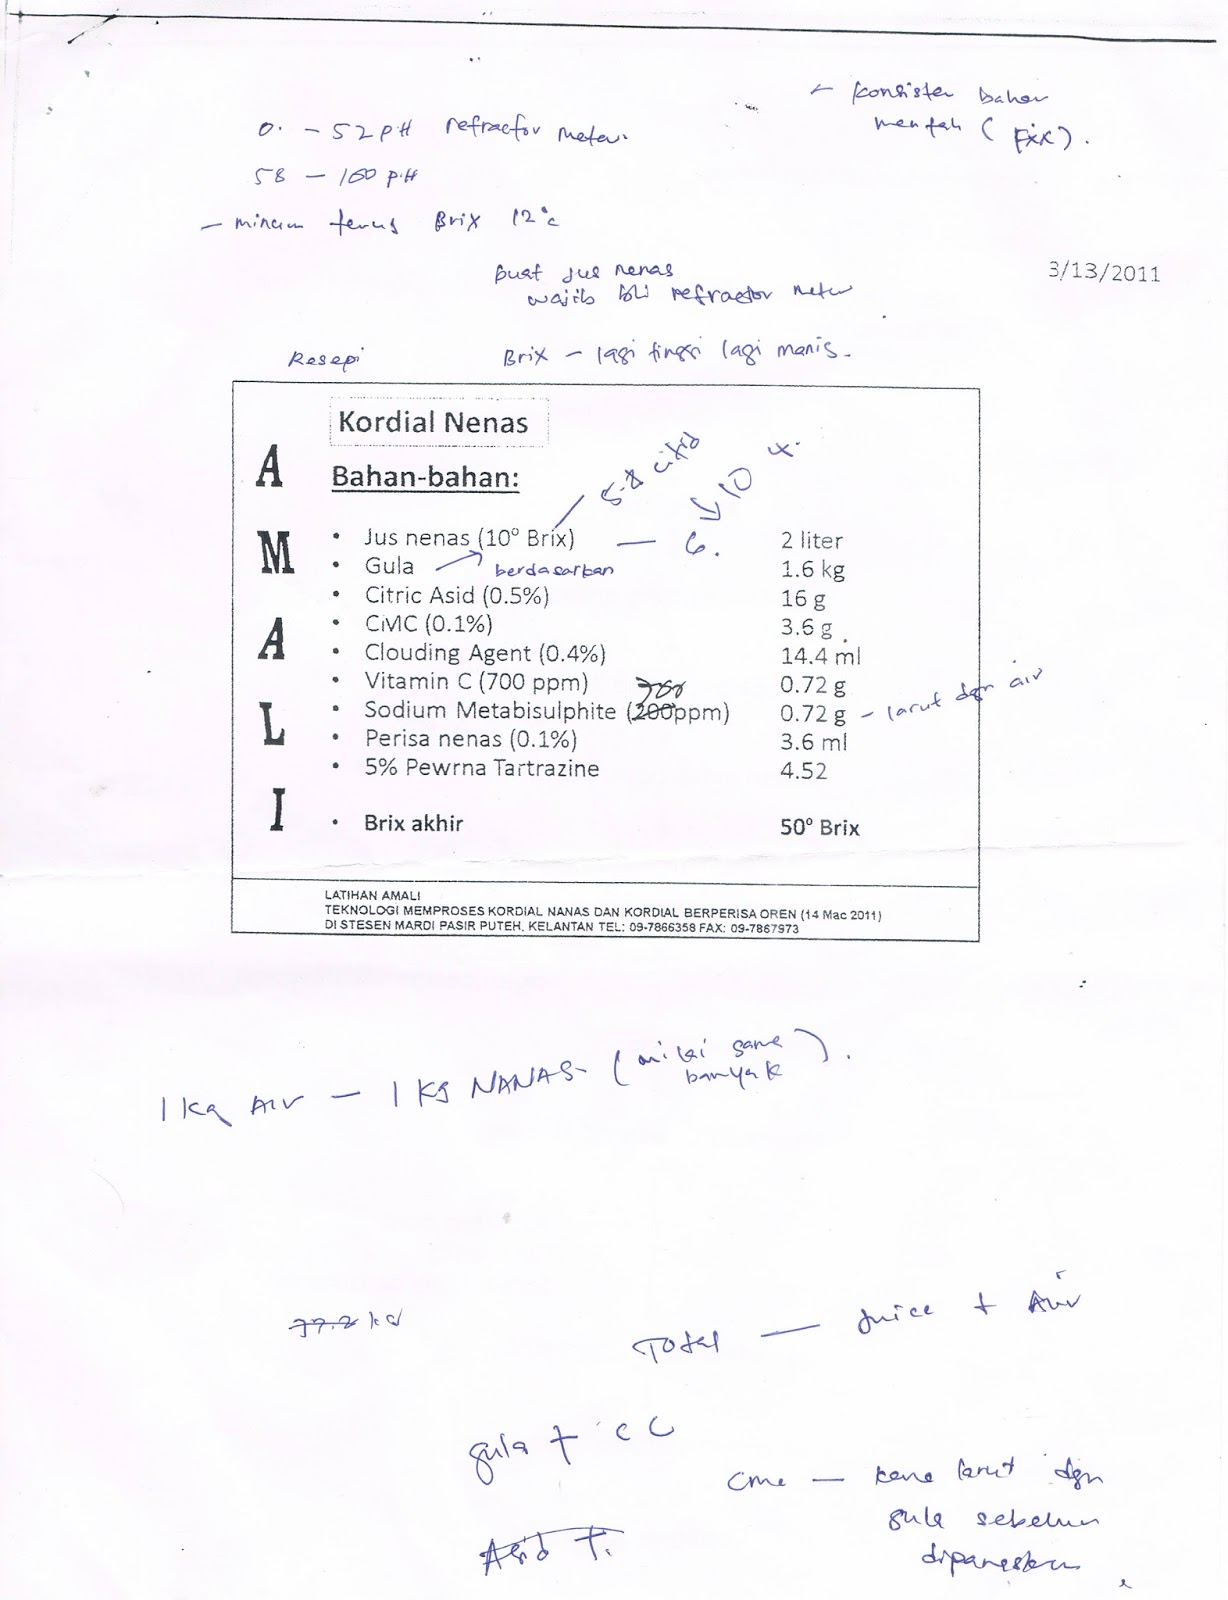 ← konsisten bahan
mentah (Fix).
0. – 52 pH refractor meter.
58 – 160 pH
– minum terus Brix 12°c
3/13/2011
buat jus nenas
wajib bli refractor meter
Resepi
Brix – lagi tinggi lagi manis.
Kordial Nenas
Bahan-bahan:
5-8 citrd
10
• Jus nenas (10° Brix) — 6. 2 liter
• Gula berdasarkan 1.6 kg
• Citric Asid (0.5%) 16 g
• CMC (0.1%) 3.6 g
• Clouding Agent (0.4%) 14.4 ml
• Vitamin C (700 ppm) 0.72 g
• Sodium Metabisulphite (200ppm) 0.72 g – larut dgn air
• Perisa nenas (0.1%) 3.6 ml
• 5% Pewrna Tartrazine 4.52
• Brix akhir 50° Brix
A
M
A
L
I
LATIHAN AMALI
TEKNOLOGI MEMPROSES KORDIAL NANAS DAN KORDIAL BERPERISA OREN (14 Mac 2011)
DI STESEN MARDI PASIR PUTEH, KELANTAN TEL: 09-7866358 FAX: 09-7867973
1 kg Air – 1 KG NANAS (nilai sama
banyak).
77.2 kg
Total — Juice + Air
gula + CC
cmc — kena larut dgn
gula sebelum
dipanaskan
Asid T.